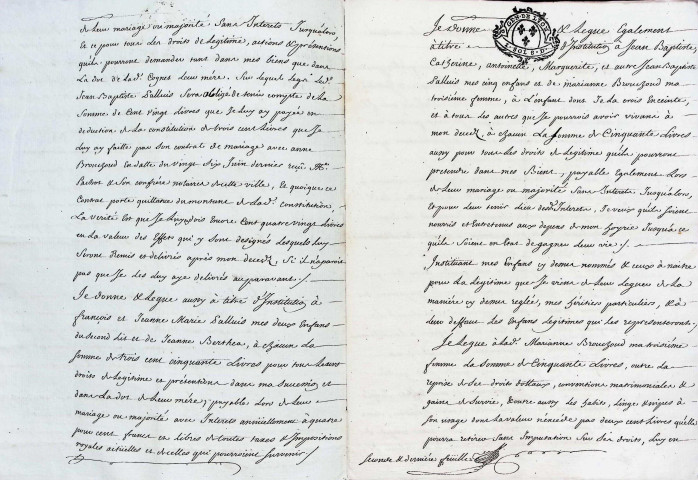 de Leur mariage ou majorité, Sans Interets Jusqualors,
le ce pour tous Les droits de Legitime, actions & pretentions
quils pourront demander tant dans mes biens que dans
La dot de Lad. Eynet Leur mére, Sur Lequel Legs Led.
Jean Baptiste Lalluis Sera obligé de tenir compte de La
Somme de Cent vingt Livres que Je Luy ay payée en
deduction de La constitution de trois cent Livres que Je
Luy ay faitte par Son contrat de mariage avec anne
Brouzoud en datte du vingt Six Juin dernier reçu Me
Pachot & Son confrere notaires de cette ville, Et quoique ce
Contrat porte quittance du montant de Lad. constitution
La verité Est que Je Luy dois Encore Cent quatre vingt Livres
en La valeur des Effets qui y Sont designés Lesquels Luy
Seront Remis et delivrés aprés mon decez, Si il n'aparoit
pas que Je Les Luy aye delivrés auparavant. /.
Je donne & Legue aussy à titre d'Institution à
françois et Jeanne Marie Lalluis mes deux Enfans
du Second Lit et de Jeanne Berthea, à chacun La
Somme de trois cent cinquante Livres pour tous Leurs
droits de Legitime et prétentions dans ma Succession et
dans La dot de Leur mére, payable Lors de Leur
mariage ou majorité avec Interets annuellement à quatre
pour cent francs et Libres de toutes taxes & Impositions
royales actuelles et de celles qui pourroient Survenir /.
Je donne & Legue Egalement
à titre d'Institution à Jean Baptiste,
Catherine, antoinette, Marguerite, et autre Jean Baptiste
Lalluis mes cinq enfans et de marianne Brouzoud ma
troisiéme femme, à L'enfant dont Je La crois Enceinte,
et à tous Les autres que Je pourrois avoir vivans à
mon decez, à chacun La Somme de Cinquante Livres
aussy pour tous Les droits de Legitime qu'ils pourront
pretendre dans mes Biens, payable Egalement Lors
de Leur mariage ou majorité Sans Interets Jusqualors,
Et pour Leur tenir Lieu desd. Interets, Je veux qu'ils Soient
nourris et Entretenus aux depens de mon hoyrie Jusqu'à ce
qu'ils Soient en Etat de gagner Leur vie /.
Instituant mes Enfans cy dessus nommés & ceux à naitre
pour La Legitime que Je viens de Leur Leguer de La
maniére cy dessus reglée, mes héritiers particuliers, & à
Leur deffaut Les Enfans Legitimes qui Les representeront.
Je Legue à Lad. Marianne Brouzoud ma troisiéme
femme La Somme de Cinquante Livres, outre La
reprise de Ses droits dottaux, conventions matrimoniales &
gains de Survie, Encore aussy Ses habits, Linges & nipes à
Son usage dont La valeur n'éxcéde pas deux cent Livres qu'elle
pourra retirer Sans Imputation Sur Ses droits, Luy en
Seconde & derniére feuille